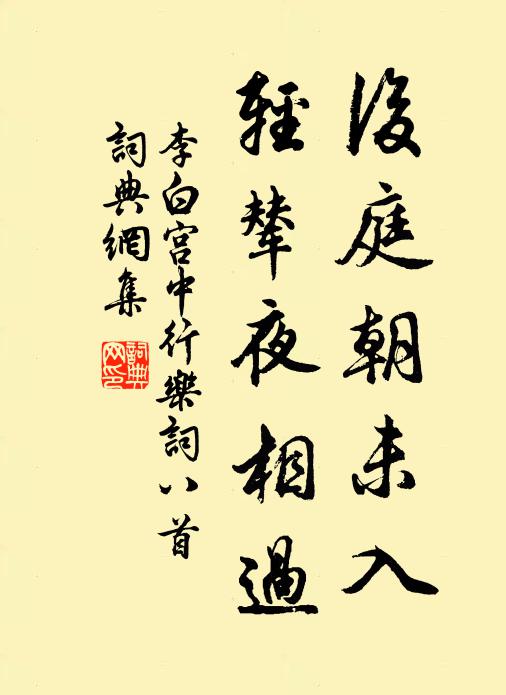 後庭朝未入
輕輦夜相過
李白宮中行樂詞八首
詞典網集
詞典網印